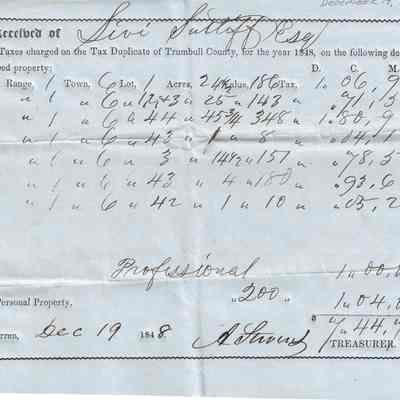 DECEMBER 19,
Received of Levi Sutliff Esq
Taxes charged on the Tax Duplicate of Trumbull County, for the year 1848, on the following de
bed property: D. C. M.
Range, 1 Town, 6 Lot, 1 Acres, 24½ Value, 186 Tax, 1 06, 9
" 1 " 6 " 12&43 " 25 " 143 " 91, 5
" 1 " 6 " 44 " 45¾ 348 " 1 80, 9
" 1 " 6 " 43 " 1 " 8 " 04, 1
" 1 " 6 " 3 " 14½ " 151 " 78, 5
" 1 " 6 " 43 " 4 " 180 " 93, 6
" 1 " 6 " 42 " 1 " 10 " 05, 2
Professional 1 00,
Personal Property, " 200 " 1 04,
rren, Dec 19 1848 44,
TREASURER.